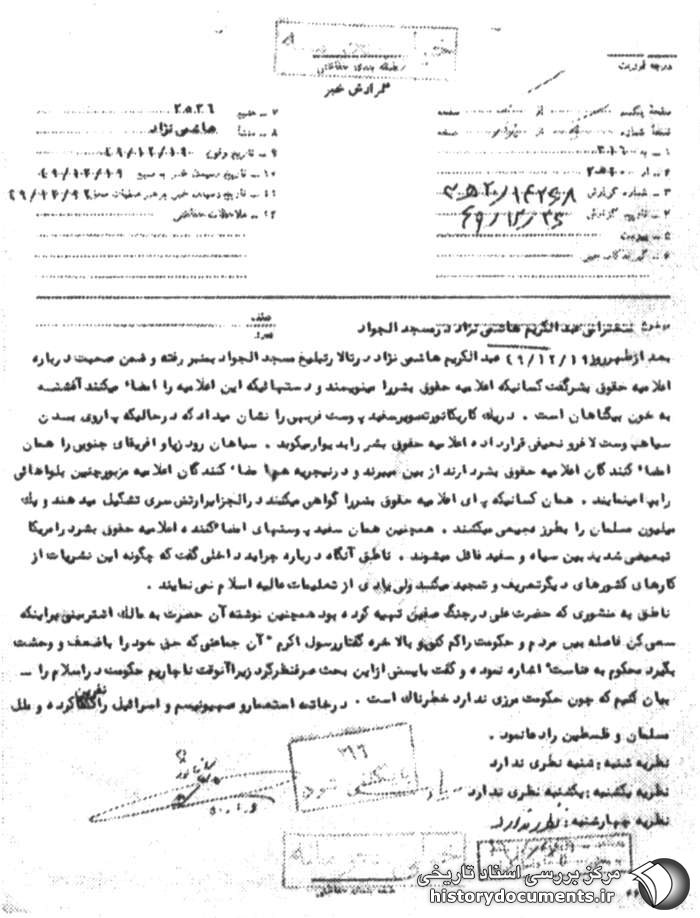 خیلی محرمانه
طبقه بندی حفاظتی
درجه فوریت
گزارش خبر
صفحه یکم از صفحه
نسخه شماره از نسخه
۱ ـ به ۳۱۶
۲ ـ از
۳ ـ شماره گزارش
۴ ـ تاریخ گزارش
۵ ـ پیوست
۶ ـ گیرندگان خبر
۷ ـ منبع ۲۵۲۶
۸ ـ منشأ هاشمی نژاد
۹ ـ تاریخ وقوع ۴۹/۱۲/۱۹
۱۰ ـ تاریخ رسیدن خبر به منبع ۴۹/۱۲/۱۹
۱۱ ـ تاریخ رسیدن خبر به رهبر عملیات
۱۲ ـ ملاحظات حفاظتی
موضوع سخنرانی عبدالکریم هاشمی نژاد در مسجد الجواد
بعد از ظهر روز ۴۹/۱۲/۱۹ عبدالکریم هاشمی نژاد در تالار تبلیغ مسجد الجواد بمنبر رفته و ضمن صحبت درباره
اعلامیه حقوق بشر گفت کسانیکه اعلامیه حقوق بشر را مینویسند و دستهائیکه این اعلامیه را امضاء میکنند آغشته
به خون بیگناهان است . در یک کاریکاتور تصویر سفید پوست فربهی را نشان میداد که در حالیکه پا روی بدن
سیاهپوست لاغر و نحیفی قرار داده اعلامیه حقوق بشر را بدیوار میکوبد . سیاهان رودزیا و افریقای جنوبی را همان
امضاء کنندگان اعلامیه حقوق بشر دارند از بین میبرند و در نیجریه هم امضاء کنندگان اعلامیه مزبور چنین بلواهائی
را بپا مینمایند . همان کسانیکه پای اعلامیه حقوق بشر را گواهی میکنند در الجزایر ارتش سری تشکیل میدهند و یک
میلیون مسلمان را بطرز فجیعی میکشند . همچنین همان سفید پوستهای امضاء کننده اعلامیه حقوق بشر در امریکا
تبعیض شدید بین سیاه و سفید قائل میشوند . ناطق آنگاه درباره جراید داخلی گفت که چگونه این نشریات از
کارهای کشورهای دیگر تعریف و تمجید میکنند ولی یادی از تعلیمات عالیه اسلام نمی نمایند .
ناطق به منشوری که حضرت علی در جنگ صفین تهیه کرده بود همچنین نوشته آن حضرت به مالک اشتر مبنی بر اینکه
سعی کن فاصله بین مردم و حکومت را کم کنی و بالاخره گفتار رسول اکرم "آن جماعتی که حق خود را با ضعف و وحشت
بگیرد محکوم به فناست" اشاره نموده و گفت بایستی از این بحث صرفنظر کرد زیرا آنوقت ناچاریم حکومت در اسلام را ـ
بیان کنیم که چون حکومت مرزی ندارد خطرناک است . در خاتمه استعمار و صهیونیسم و اسرائیل را نفرین کرده و ملل
مسلمان و فلسطین را دعا نمود .
نظریه شنبه : شنبه نظری ندارد
نظریه یکشنبه : یکشنبه نظری ندارد
نظریه چهارشنبه : نظری ندارد
۳۱۶
بایگانی شود
خیلی محرمانه
طبقه بندی حفاظتی
مرکز بررسی اسناد تاریخی
historydocuments.ir